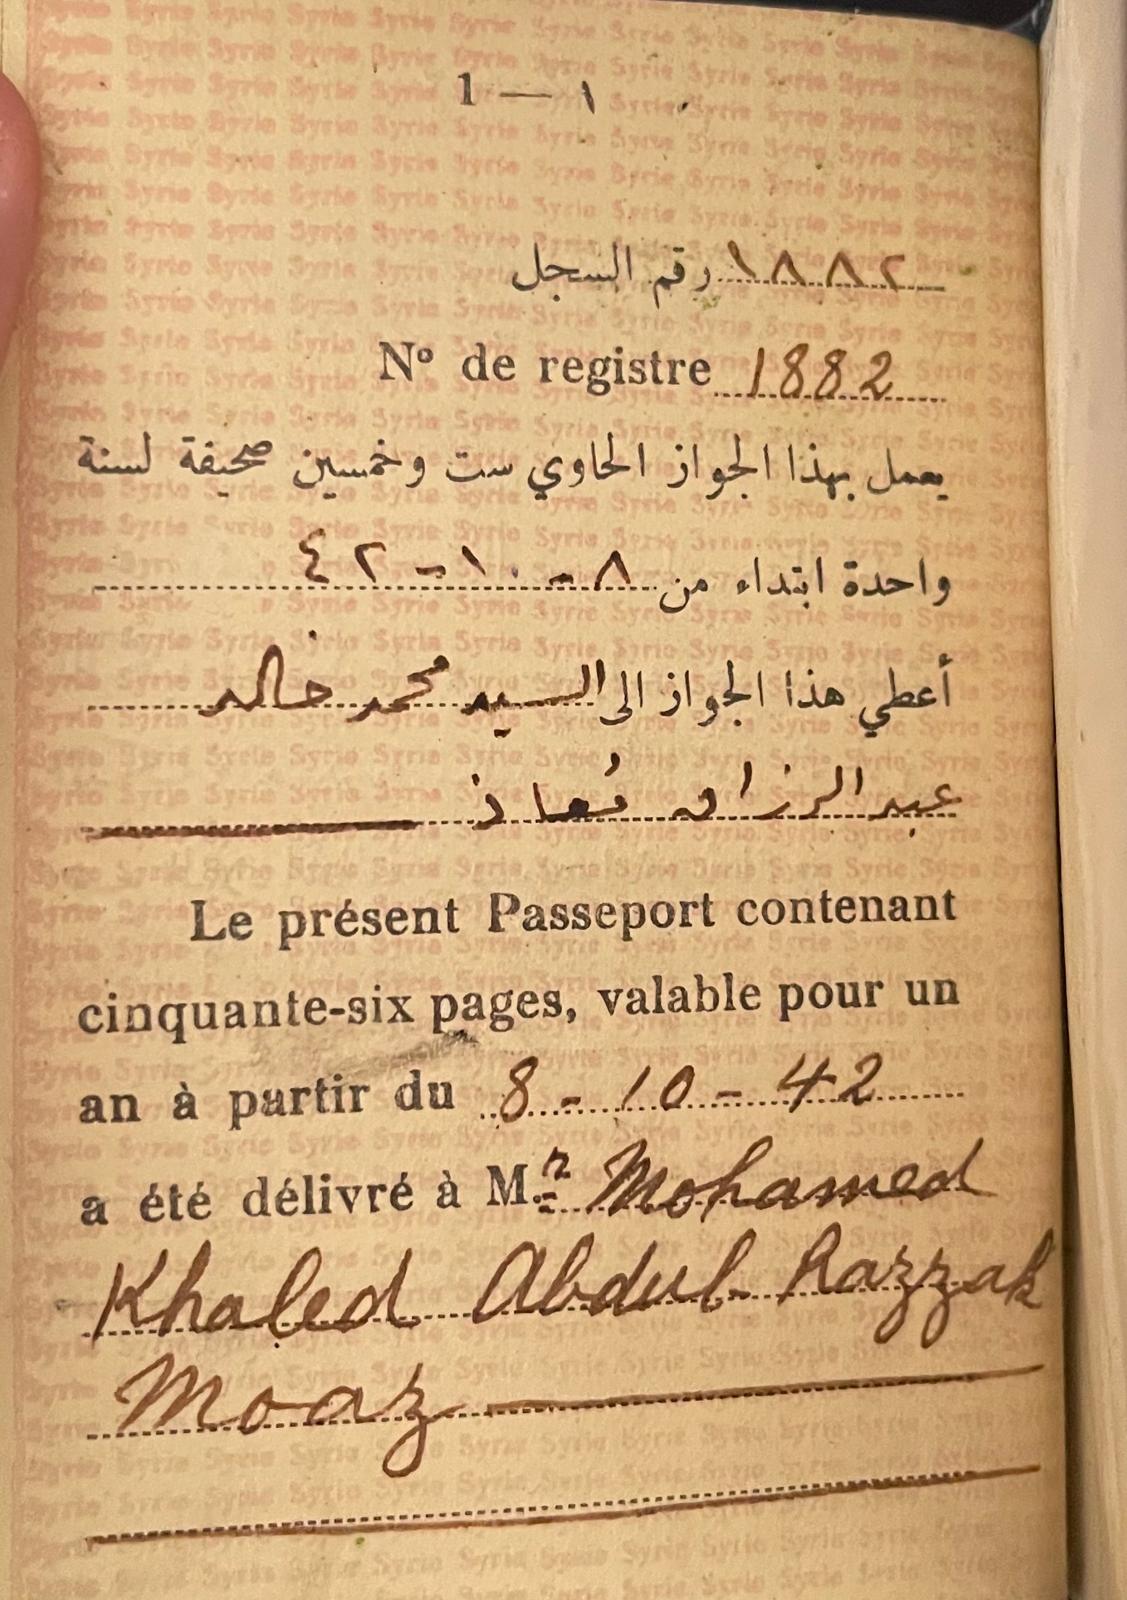 1 — ١
رقم السجل ١٨٨٢
Nº de registre 1882
يعمل بهذا الجواز الحاوي ست وخمسين صحيفة لسنة
واحدة ابتداء من ٨-١٠-٤٢
أعطي هذا الجواز الى السيد محمد خالد
عبد الرزاق مُعاذ
Le présent Passeport contenant
cinquante-six pages, valable pour un
an à partir du 8-10-42
a été délivré à M.r Mohamed
Khaled Abdul-Razzak
Moaz